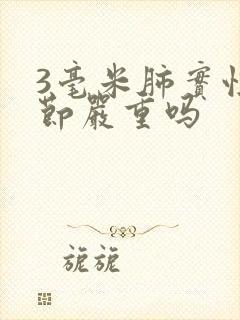 3毫米肺實性
節嚴重吗
旎旎